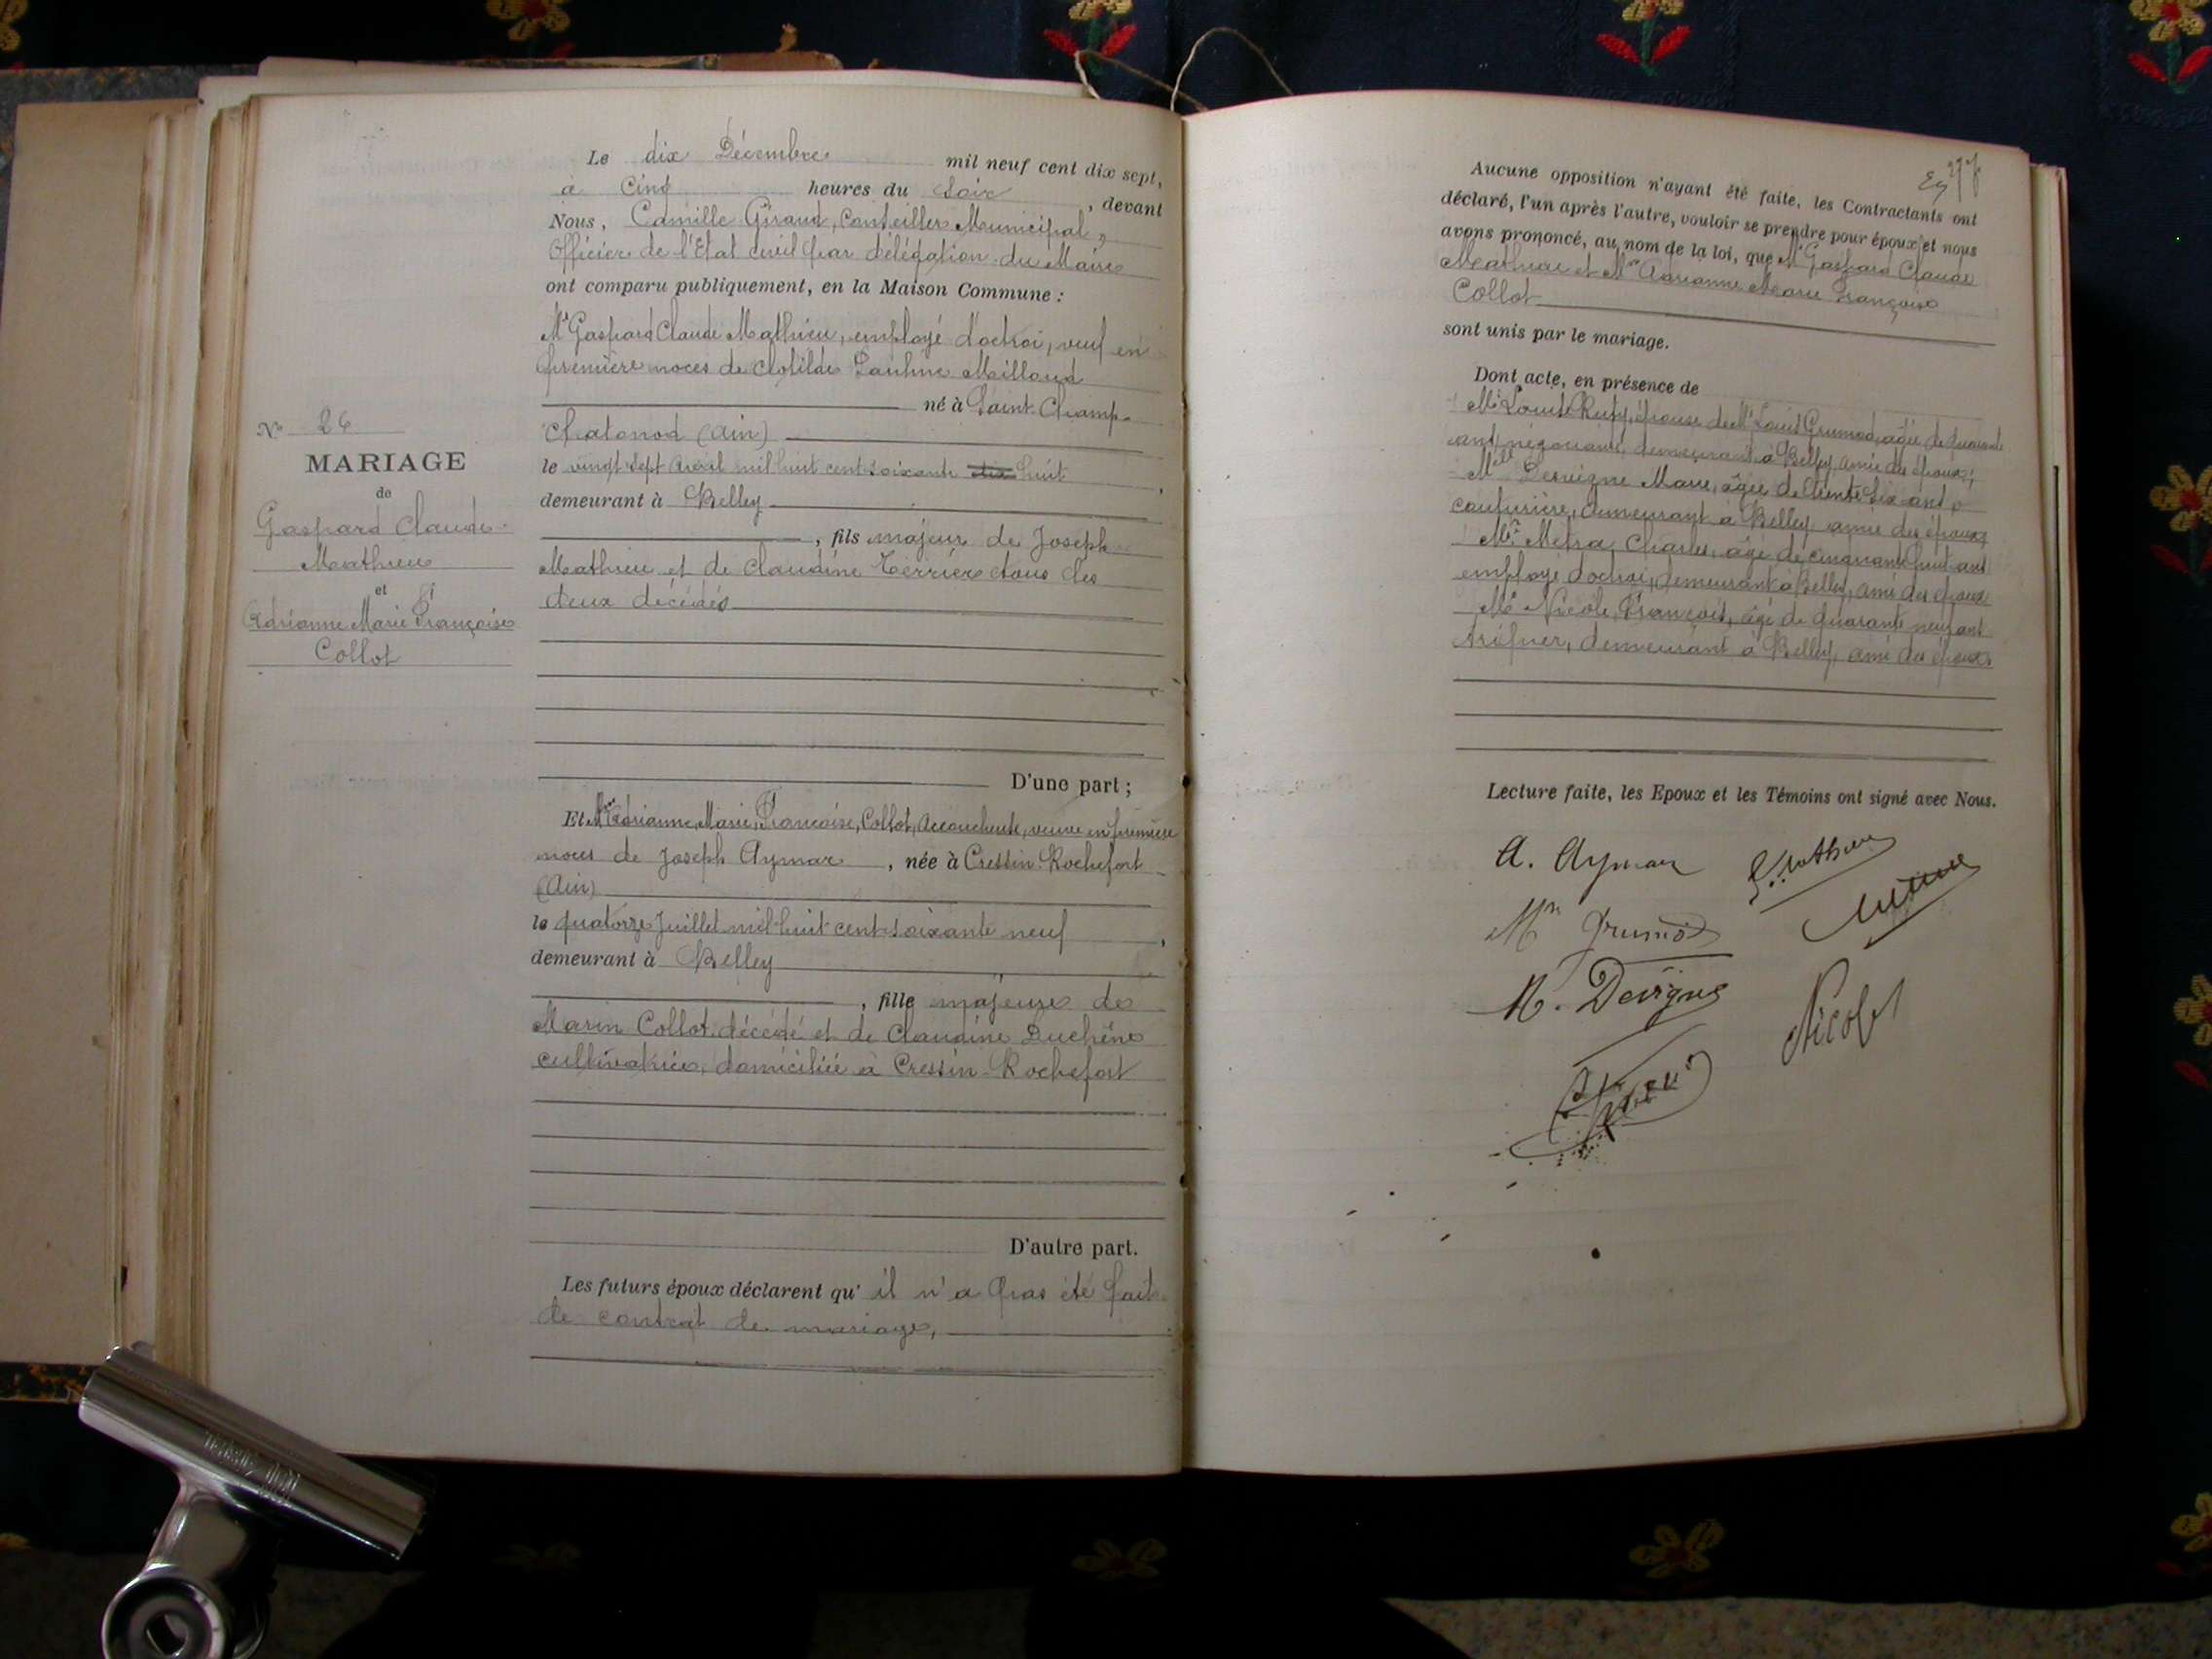 N° 26
MARIAGE
de
Gaspard Claude
Mathieu
et
Adrianne Marie Françoise
Collot
Le dix Décembre mil neuf cent dix sept,
à cinq heures du soir, devant
Nous, Camille Giraud, Conseiller Municipal,
Officier de l'Etat civil par délégation du Maire
ont comparu publiquement, en la Maison Commune :
Mr Gaspard Claude Mathieu, employé d'octroi, veuf en
première noces de Clotilde Pauline Milloud
né à Saint-Champ-
Chatonod (Ain)
le vingt sept avril mil huit cent soixante dix huit,
demeurant à Belley
, fils majeur de Joseph
Mathieu et de Claudine Terrier tous les
deux décédés
D'une part ;
Et Mme Adrianne, Marie, Françoise, Collot, Accoucheuse, veuve en première
noces de Joseph Aymar, née à Cressin-Rochefort
(Ain)
le quatorze Juillet mil huit cent soixante neuf,
demeurant à Belley
, fille majeure de
Marin Collot décédé et de Claudine Duchêne
cultivatrice, domiciliée à Cressin-Rochefort
D'autre part.
Les futurs époux déclarent qu'il n'a pas été fait
de contrat de mariage,
Aucune opposition n'ayant été faite, les Contractants ont
déclaré, l'un après l'autre, vouloir se prendre pour époux et nous
avons prononcé, au nom de la loi, que Mr Gaspard Claude
Mathieu et Me Adrianne Marie Françoise
Collot
sont unis par le mariage.
Dont acte, en présence de
Me Louise Ruty, épouse de Mr Louis Grumod, agée de quarante
ans, négociante, demeurant à Belley, amie des époux;
Melle Marie, âgée de trente six ans
couturière, demeurant à Belley amie des époux;
Mr Metra, Charles, âgé de cinquante huit ans
employé d'octroi, demeurant à Belley, ami des époux
Mr Nicole, François, âgé de quarante neuf ans
tripier, demeurant à Belley, ami des époux.
Lecture faite, les Epoux et les Témoins ont signé avec Nous.
A. Aymar
G. Mathieu
Mme Grumod
Metra
M. Devigne
Nicolet